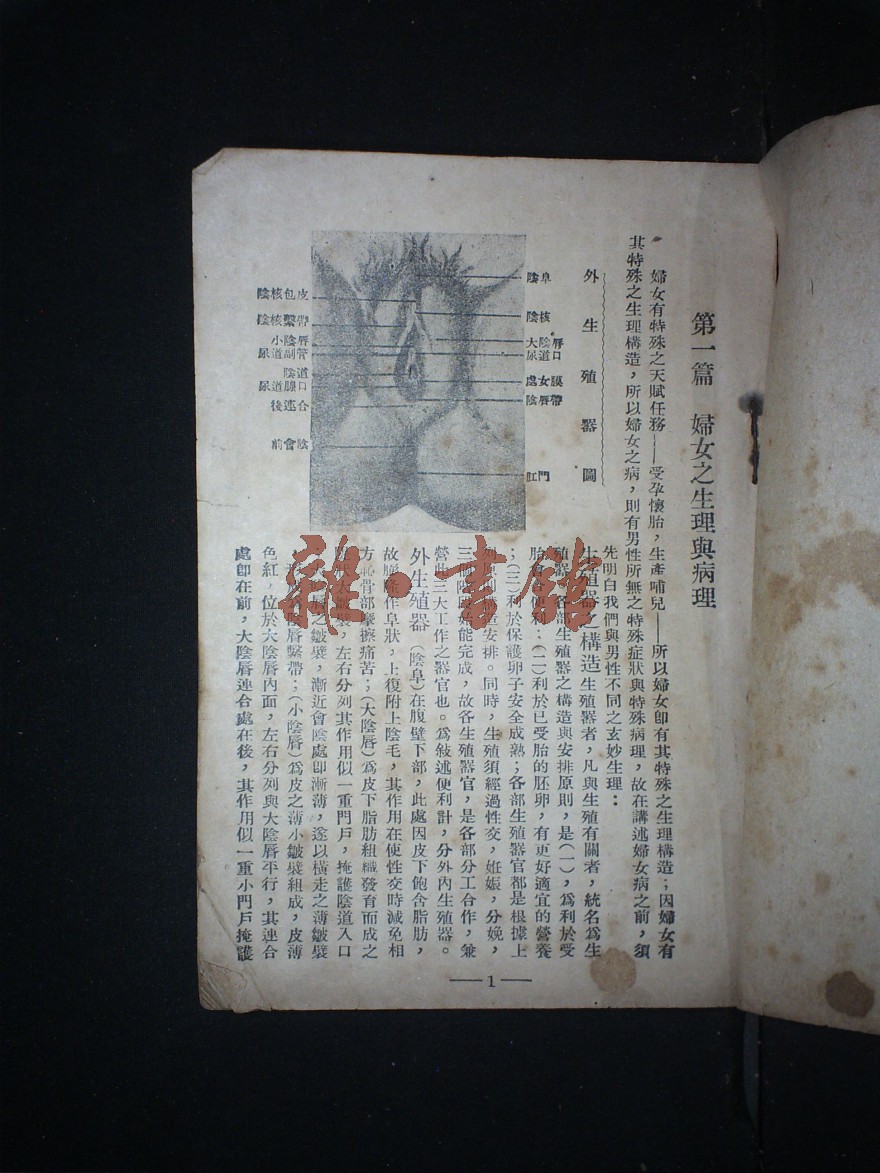 第一篇　婦女之生理與病理
婦女有特殊之天賦任務——受孕懷胎，生產哺兒——所以婦女卽有其特殊之生理構造；因婦女有
其特殊之生理構造，所以婦女之病，則有男性所無之特殊症狀與特殊病理，故在講述婦女病之前，須
先明白我們與男性不同之玄妙生理：
外生殖器圖
陰阜
陰核
大陰唇
尿道口
處女膜
陰唇帶
肛門
陰核包皮
陰核繫帶
小陰唇
尿道副管
陰道
尿道腺口
後連合
前會陰
生殖器之構造 生殖器者，凡與生殖有關者，統名爲生
殖器。各部生殖器之構造與安排原則，是（一），爲利於受
胎會合便利；（二）利於已受胎的胚卵，有更好適宜的營養
；（三）利於保護卵子安全成熟；各部生殖器官都是根據上
列原則構造安排。同時，生殖須經過性交，姙娠，分娩，
三個階段始能完成，故各生殖器官，是各部分工合作，兼
營此三大工作之器官也。爲敍述便利計，分外內生殖器。
外生殖器（陰阜）在腹壁下部，此處因皮下飽含脂肪，
故膨漲作阜狀，上復附上陰毛，其作用在使性交時減免相
方恥骨部摩擦痛苦；（大陰唇）爲皮下脂肪組織發育而成之
狀大皺襞，左右分列其作用似一重門戶，掩護陰道入口
唇之皺襞，漸近會陰處卽漸薄，遂以橫走之薄皺襞
陰唇繫帶；（小陰唇）爲皮之薄小皺襞組成，皮薄
色紅，位於大陰唇內面，左右分列與大陰唇平行，其連合
處卽在前，大陰唇連合處在後，其作用似一重小門戶掩護
—1—
雜·書館